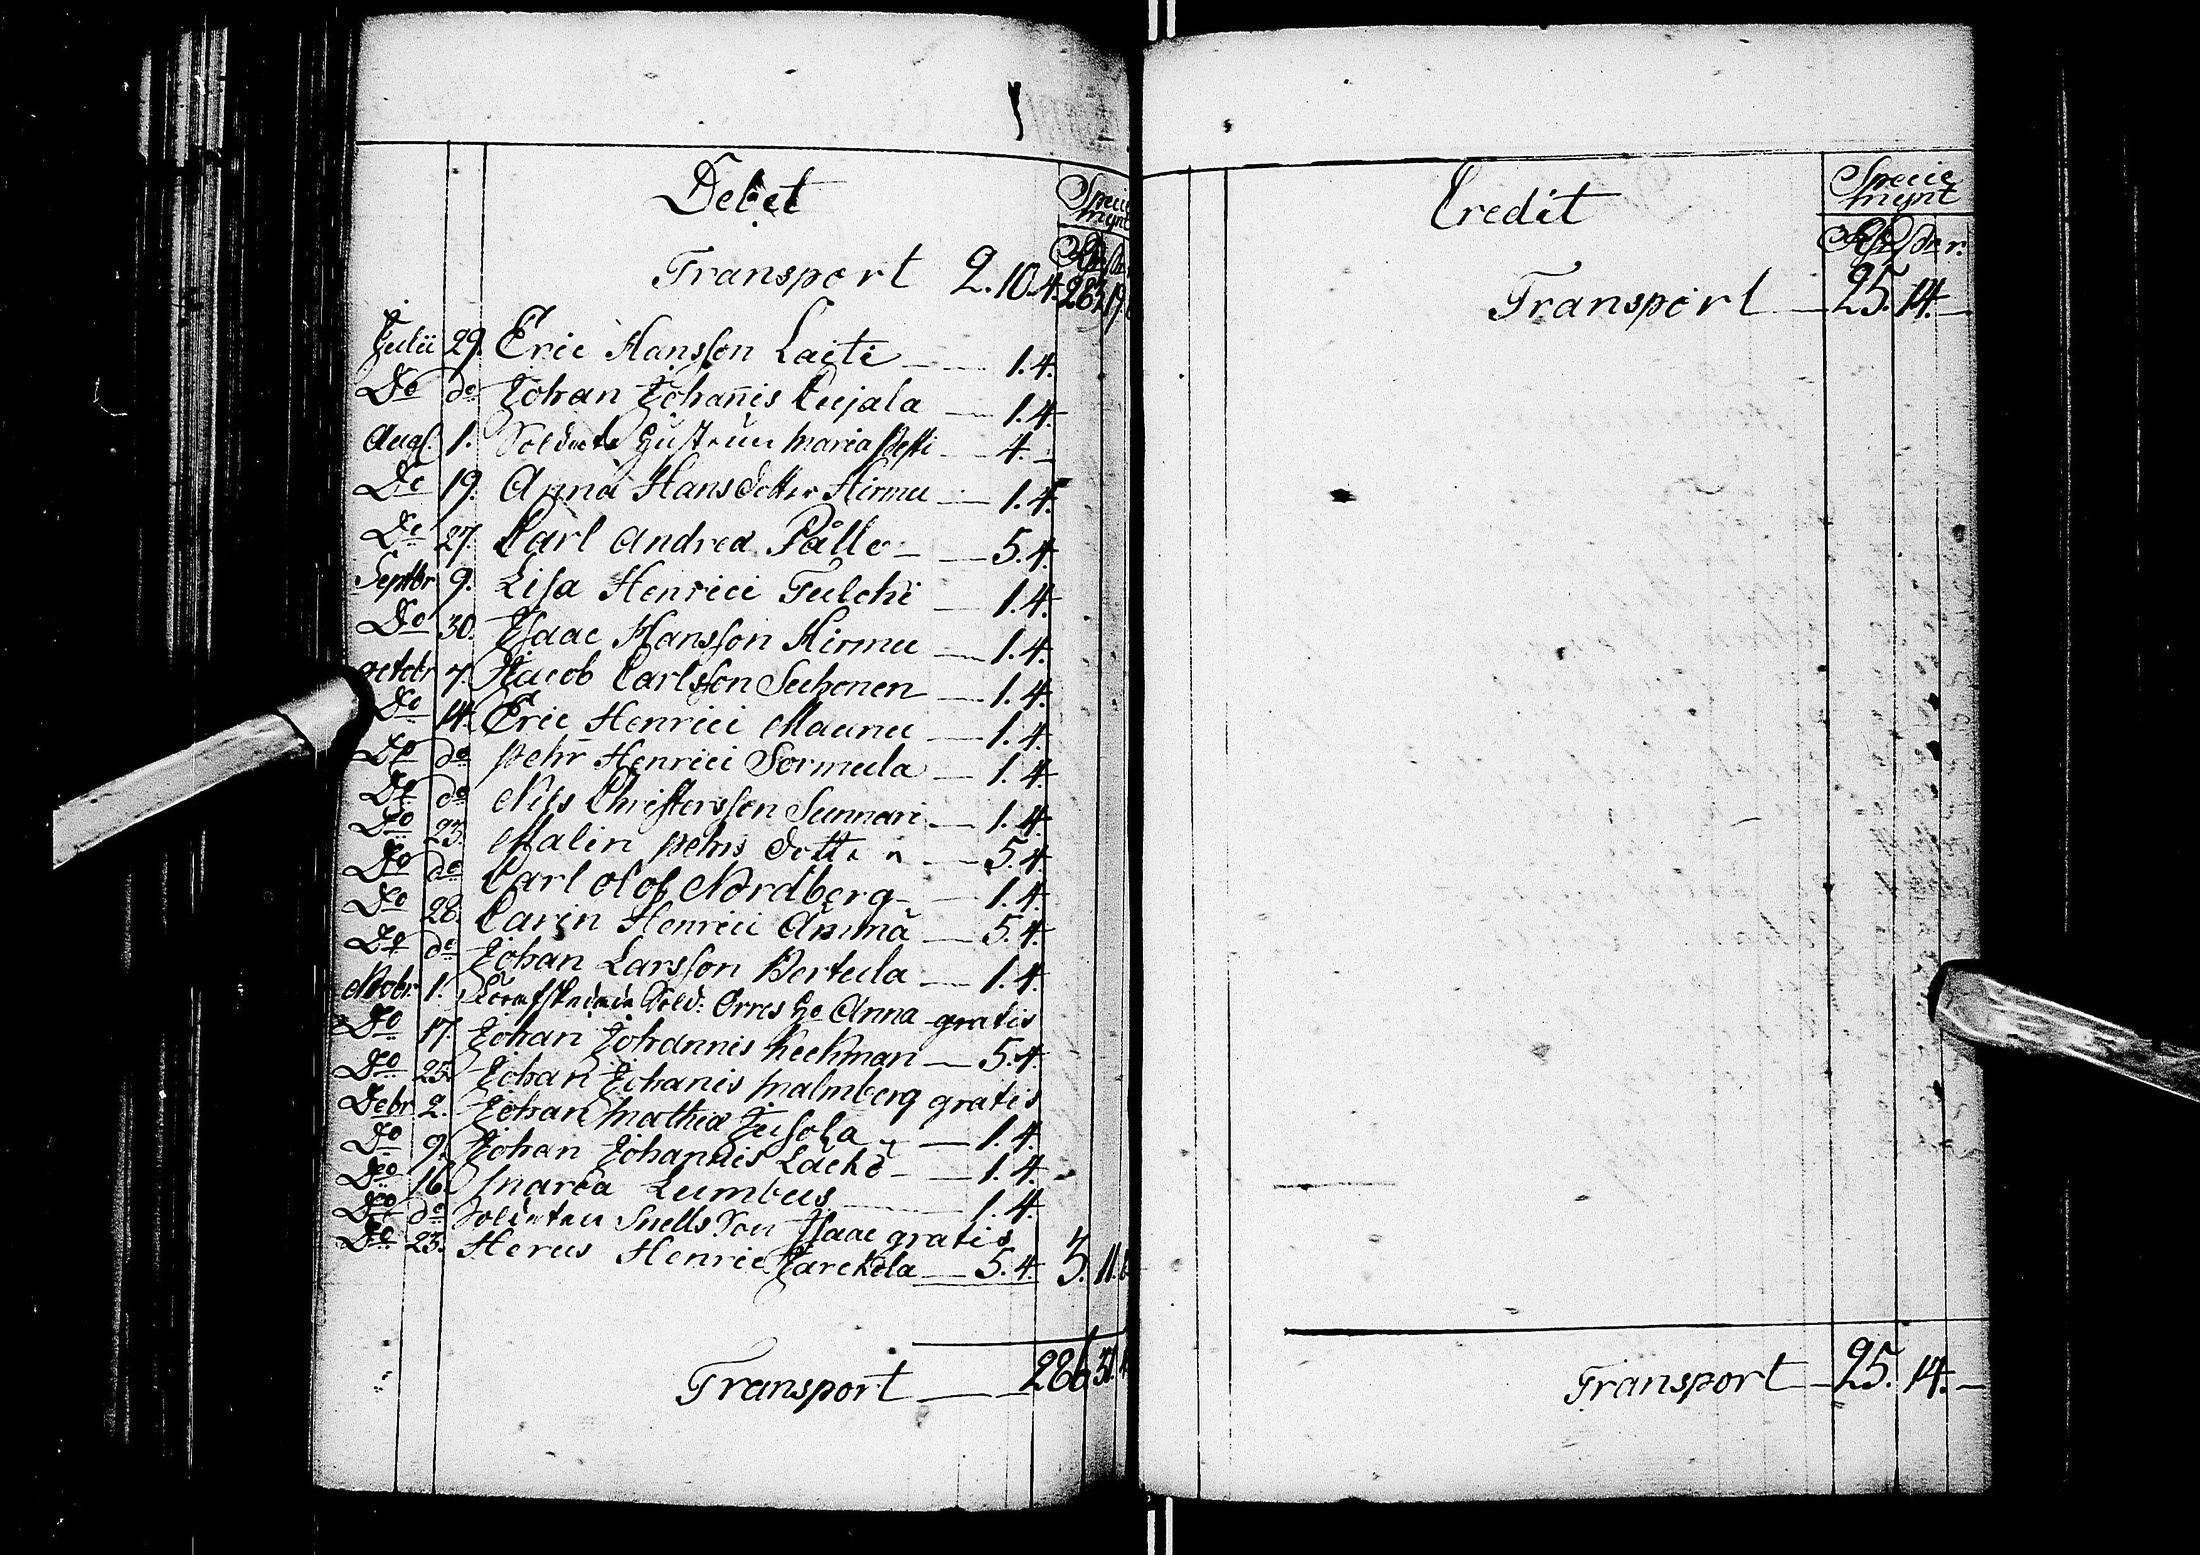 Debet
Specie
mynt
Transport 2.10.4. 283.19.
Julii 29. Eric Hansson Laiti 1.4.
Do do Johan Johanis Cujala 1.4.
Augs. 1. Soldate Hustrun Maria Pesti 4.
Do 19. Anna Hansdotter Hirmu 1.4.
Do 27. Carl Andreæ Pålle 5.4.
Septbr 9. Lisa Henrici Tulchi 1.4.
Do 30. Isaac Hansson Hirmu 1.4.
octobr 7. Jacob Carlsson Suhonen 1.4.
Do 14. Eric Henrici Maunu 1.4.
Do do Pehr Henrici Sormula 1.4.
Do do Nils Christersson Sunnari 1.4.
Do 23. Malin Pehrs dotter 5.4.
Do do Carl Olof Nordberg 1.4.
Do 28. Carin Henrici Ämmä 5.4.
Do do Johan Larsson Pertula 1.4.
Nobr. 1. Sold. Orres Ho Anna gratis
Do 17. Johan Johannis Keckman 5.4.
Do 25. Johan Johanis Malmberg gratis
Debr 2. Johan Mathiæ Jusola 1.4.
Do 9. Johan Johannis Lacko 1.4.
Do 16. Maria Lumbus 1.4.
Do do Soldaten Snells Son Isaac gratis
Do 23. Herus Henric Jarckola 5.4. 3.11.
Transport 286.31.
Credit
Specie
mynt
Transport 25.14.
Transport 25.14.